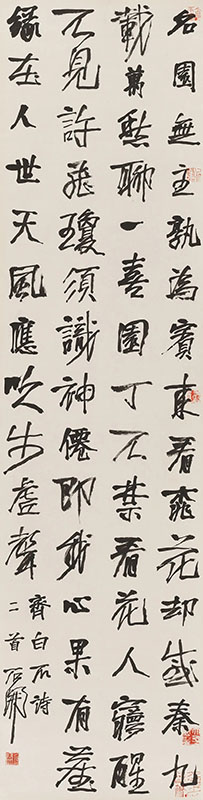 名園無主孰為賓來看花却感秦九
載萬愁聊一喜園丁不禁看花人醒
不見許飛瓊須識神僊即我心果有塵
緣在人世天風應吹步虛聲
齊白石詩
二首石開